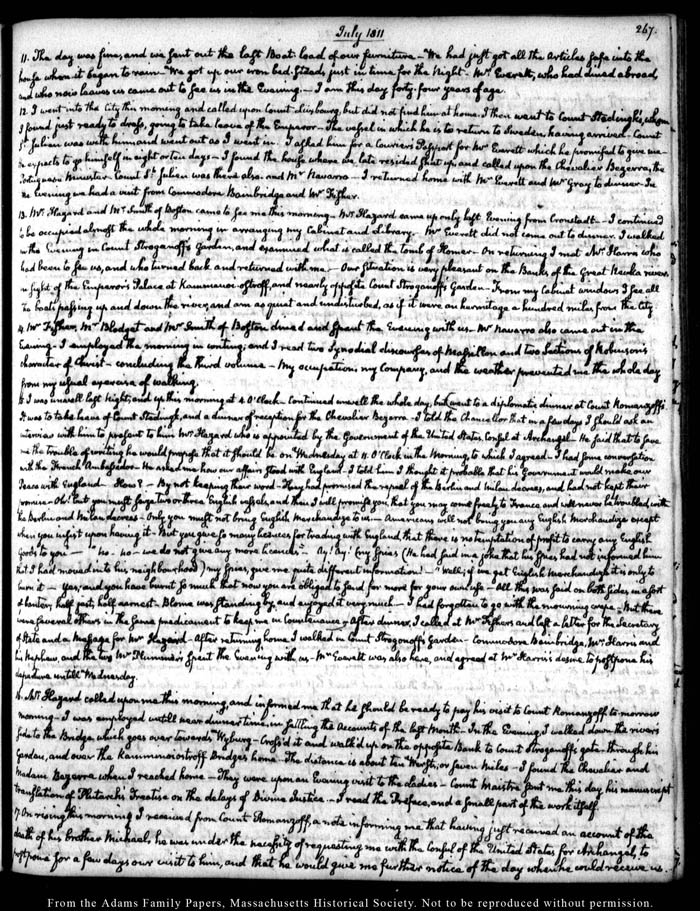 July 1811
267.
11. The day was fine, and we sent out the last Boat-load of our furniture – We had just got all the Articles safe into the
house when it began to rain – We got up our iron bed-Stead, just in time for the Night – Mr. Everett, who had dined abroad,
and who now leaves us came out to see us in the Evening – I am this day forty-four years of age.
12. I went into the City this morning and called upon Count Lüxbourg, but did not find him at home. I then went to Count Stedingk's, whom
I found just ready to dress, going to take leave of the Emperor – The vessel in which he is to return to Sweden having arrived – Count
St. Julien was with him, and went out as I went in – I asked him for a Courier's Passport for Mr. Everett which he promised to give me –
he expects to go himself in eight or ten days – I found the house where we late resided shut up, and called upon the Chevalier Bezerra, the
Portuguese Minister – Count St. Julien was there also. and Mr. Navarro – I returned home with Mr. Everett and Mr. Gray to dinner – In
the Evening we had a visit from Commodore Bainbridge and Mr. Fisher.
13. Mr. Hazard and Mr. Smith of Boston came to see me this morning – Mr. Hazard came up only last Evening from Cronstadt – I continued
to be occupied almost the whole morning in arranging my Cabinet and Library. Mr. Everett did not come out to dinner. I walked
in the Evening in Count Stroganoff's Garden, and examined what is called the tomb of Homer – On returning I met Mr. Harris who
had been to see us, and who turned back and returned with me – Our Situation is very pleasant on the Banks of the Great Nevka river
in sight of the Emperor's Palace at Kammenoi-ostroff, and nearly opposite Count Stroganoff's Garden – From my Cabinet windows I see all
the boats passing up and down the river, and am as quiet and undisturbed, as if it were an hermitage a hundred miles from the City
4. Mr. Fisher, Mr. Blodget and Mr. Smith of Boston, dined and spent the Evening with us – Mr. Navarro also came out in the
Evening – I employed the morning in writing; and I read two Synodial discourses of Massillon and two Sections of Robinson's
character of Christ – concluding the third volume – My occupation, my Company, and the weather prevented me the whole day
from my usual exercise of walking.
15 I was unwell last Night; and up this morning at 4 O'Clock – Continued unwell the whole day, but went to a diplomatic dinner at Count Romanzoff's
It was to take leave of Count Stedingk, and a dinner of reception for the Chevalier Bezerra – I told the Chancellor that in a few days I should ask an
interview with him to present to him Mr. Hazard who is appointed by the Government of the United States, Consul at Archangel – He said that to save
me the trouble of writing he would propose that it should be on Wednesday at 11 O'Clock in the Morning, to which I agreed – I had some conversation
with the French Ambassador – He asked me how our affairs stood with England – I told him I thought it probable that his Government would make our
Peace with England – How? – By not keeping their word – They had promised the repeal of the Berlin and Milan decrees, and had not kept their
promise – Oh! but you must seize two or three English vessels, and then I will promise you, that you may come freely to France and will never be troubled with
the Berlin and Milan decrees – Only you must not bring English Merchandize to us – Americans will not bring you any English Merchandize except
when you insist upon having it – But you give so many licences for trading with England, that there is no temptation of profit to carry any English
Goods to you – "No – no – we do not give any more licences" – Ay! Ay! (my spies (He had said in a joke that his spies had not informed him
that I had moved into his neighbourhood) my spies, give me quite different information! – "Well; if we get English Merchandize it is only to
burn it – Yes, and you have burnt so much that now you are obliged to send for more for your own use – All this was said on both sides in a sort
of banter, half jest, half earnest – Blome was standing by, and enjoyed it very much – I had forgotten to go with the mourning crape – But there
were several others in the same predicament to keep me in countenance – After dinner, I called at Mr. Fisher's and left a letter for the Secretary
of State and a Message for Mr. Hazard – After returning home, I walked in Count Strogonoff's Garden – Commodore Bainbridge, Mr. Harris and
his Nephew and the two Mr. Plummer's spent the Evening with us – Mr. Everett was also here, and agreed at Mr. Harris's desire to postpone his
departure untill Wednesday.
16. Mr. Hazard called upon me this morning, and informed me that he should be ready to pay his visit to Count Romanzoff to morrow
morning – I was employed untill near dinner time, in settling the Accounts of the last Month – In the Evening, I walked down the river's
side to the Bridge, which goes over towards Wyburg – Cross'd it and walk'd up on the opposite Bank to Count Stroganoff's gate – through his
Garden, and over the Kammenoiostroff Bridges home – The distance is about ten Wersts, or seven Miles – I found the Chevalier and
Madam Bezerra when I reached home – They were upon an Evening visit to the Ladies – Count Maistre sent me this day his manuscript
translation of Plutarch's Treatise on the delays of Divine Justice – I read the Preface, and a small part of the work itself.
17. On rising this morning I received from Count Romanzoff, a note informing me that having just received an account of the
death of his brother Michael, he was under the necessity of requesting me with the Consul of the United States for Archangel, to
postpone for a few days our visit to him, and that he would give me further notice of the day when he could receive us.
From the Adams Family Papers, Massachusetts Historical Society. Not to be reproduced without permission.